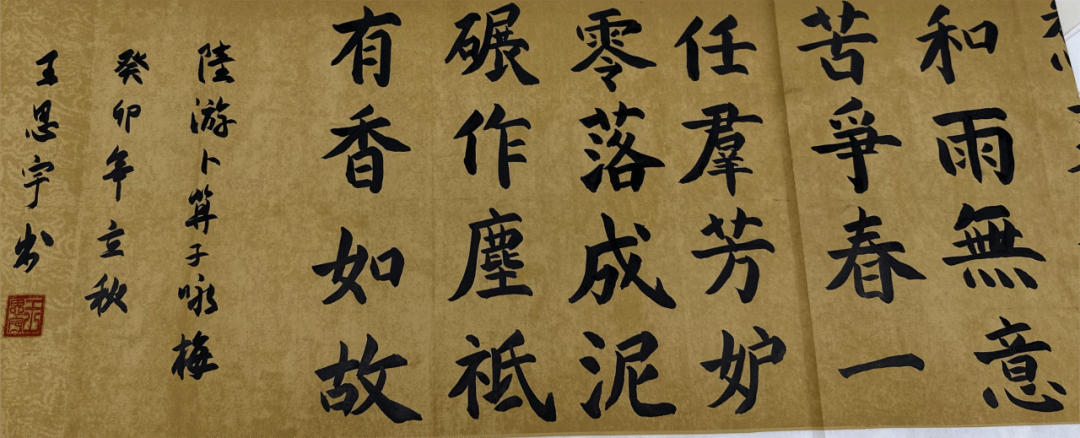 和雨無意
苦爭春一
任羣芳妒
零落成泥
碾作塵祗
有香如故
陸游卜算子咏梅
癸卯年立秋
王恩宇书